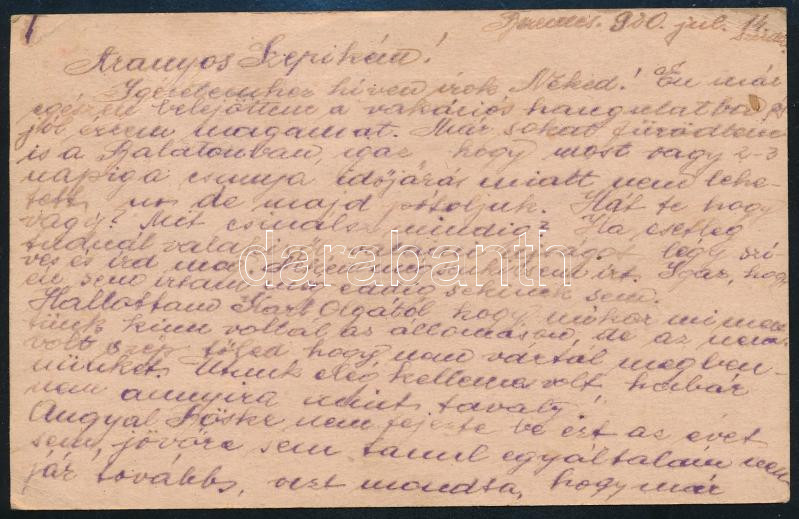 930. jul. 14.
Aranyos Szepikém!
Igéretemhez híven írok Néked! Én már
egészen belejöttem a vakációs hangulatba és
jól érzem magamat. Már sokat fürödtem
is a Balatonban, igaz hogy most vagy 2-3
napig a csunya időjárás miatt nem lehe-
tett, no de majd pótoljuk. Hát te hogy
vagy? Mit csinálsz mindig? Ha esetleg
tudnál vala légy szí-
ves és írd meg írt. Igaz, hogy
én sem írtam még eddig senkinek sem.
Hallottam Olgától hogy mikor mi men-
tünk kinn voltál az állomáson, de az nem
volt szép tőled hogy nem vártál meg ben-
nünket. Utunk elég kellemes volt habár
nem annyira mint tavaly!
Angyal Böske nem fejezte be ezt az évet
sem, jövőre sem tanul egyáltalán nem
jár tovább, ezt mondta, hogy már
darabanth